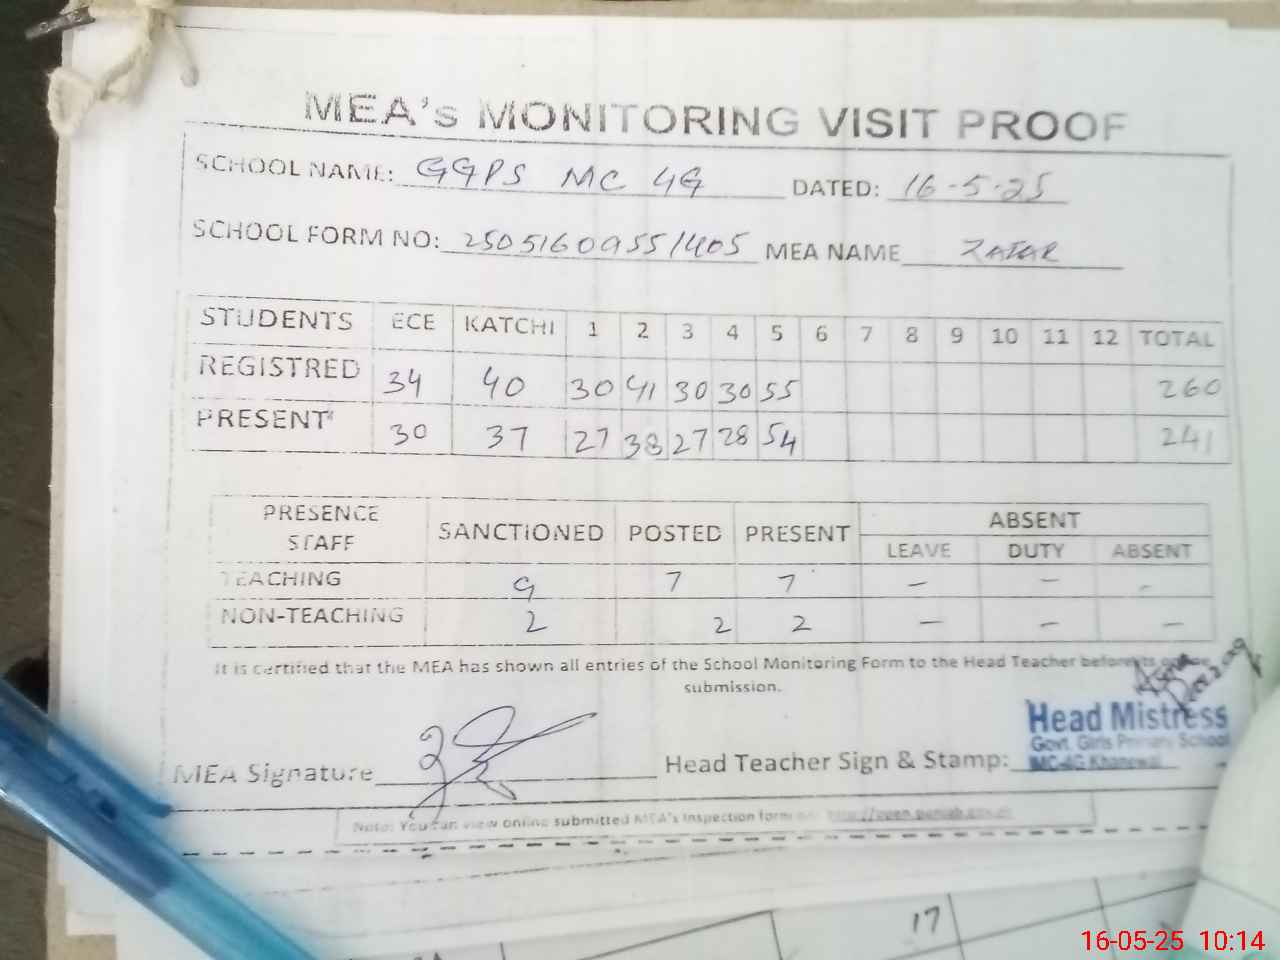 MEA's MONITORING VISIT PROOF
SCHOOL NAME: GGPS MC 4G DATED: 16-5-25
SCHOOL FORM NO: 25051609551405 MEA NAME ZAFAR
STUDENTS ECE KATCHI 1 2 3 4 5 6 7 8 9 10 11 12 TOTAL
REGISTRED 34 40 30 41 30 30 55 260
PRESENT 30 37 27 38 27 28 54 241
PRESENCE STAFF SANCTIONED POSTED PRESENT ABSENT
LEAVE DUTY ABSENT
TEACHING 9 7 7 - - -
NON-TEACHING 2 2 2 - - -
It is certified that the MEA has shown all entries of the School Monitoring Form to the Head Teacher before its
submission.
MEA Signature Head Teacher Sign & Stamp:
Head Mistress
Govt. Girls Primary School
MC-4G Khanewal
Note: You can view online submitted MEA's Inspection form
17
16-05-25 10:14